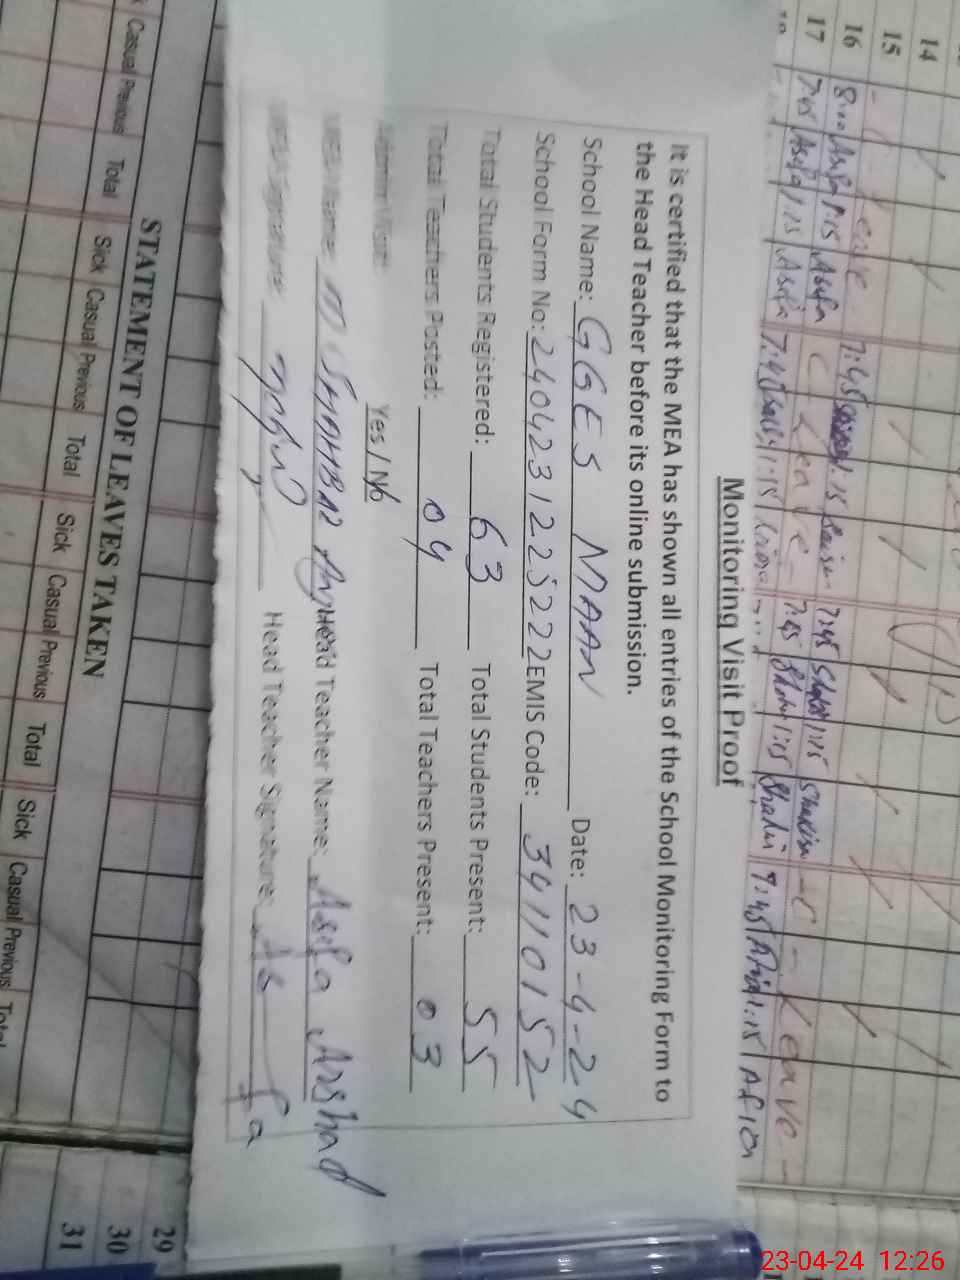 14
15
16
17
8:00 Asfa 1:15 Asfa 7:45 1:15 7:45 1:15 - C - Leave -
7:45 Asfa 1:15 Asfa 7:45 1:15 7:45 1:15 7:45 Afia 1:15 Afia
Monitoring Visit Proof
It is certified that the MEA has shown all entries of the School Monitoring Form to
the Head Teacher before its online submission.
School Name: GGES MAAN Date: 23-4-24
School Form No: 2404231225222 EMIS Code: 34110152
Total Students Registered: 63 Total Students Present: 55
Total Teachers Posted: 04 Total Teachers Present: 03
Admin Visit: Yes / No
MEA Name: M SHAHBAZ Head Teacher Name: Asfa Arshad
MEA Signature: Head Teacher Signature: As fa
STATEMENT OF LEAVES TAKEN
Casual Previous Total Sick Casual Previous Total Sick Casual Previous Total Sick Casual Previous Total
29
30
31
23-04-24 12:26